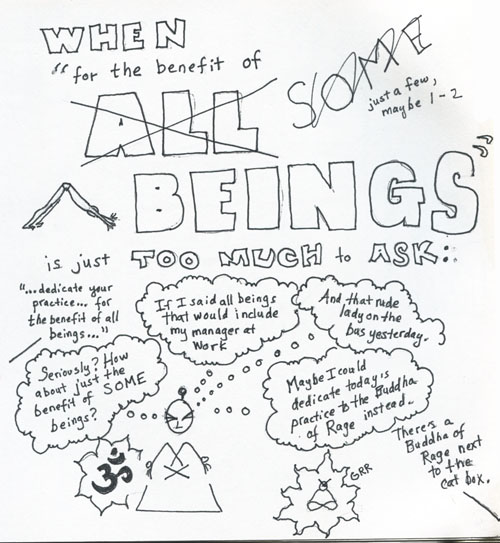 WHEN
"for the benefit of
ALL
SOME
just a few,
maybe 1-2
BEINGS"
is just TOO MUCH to ASK:
"...dedicate your
practice... for
the benefit of all
beings..."
If I said all beings
that would include
my manager at
work
And that rude
lady on the
bus yesterday.
Seriously? How
about just the
benefit of SOME
beings?
Maybe I could
dedicate today's
practice to the Buddha
of Rage instead..
There's a
Buddha of
Rage next
to the
cat box.
GRR
ॐ